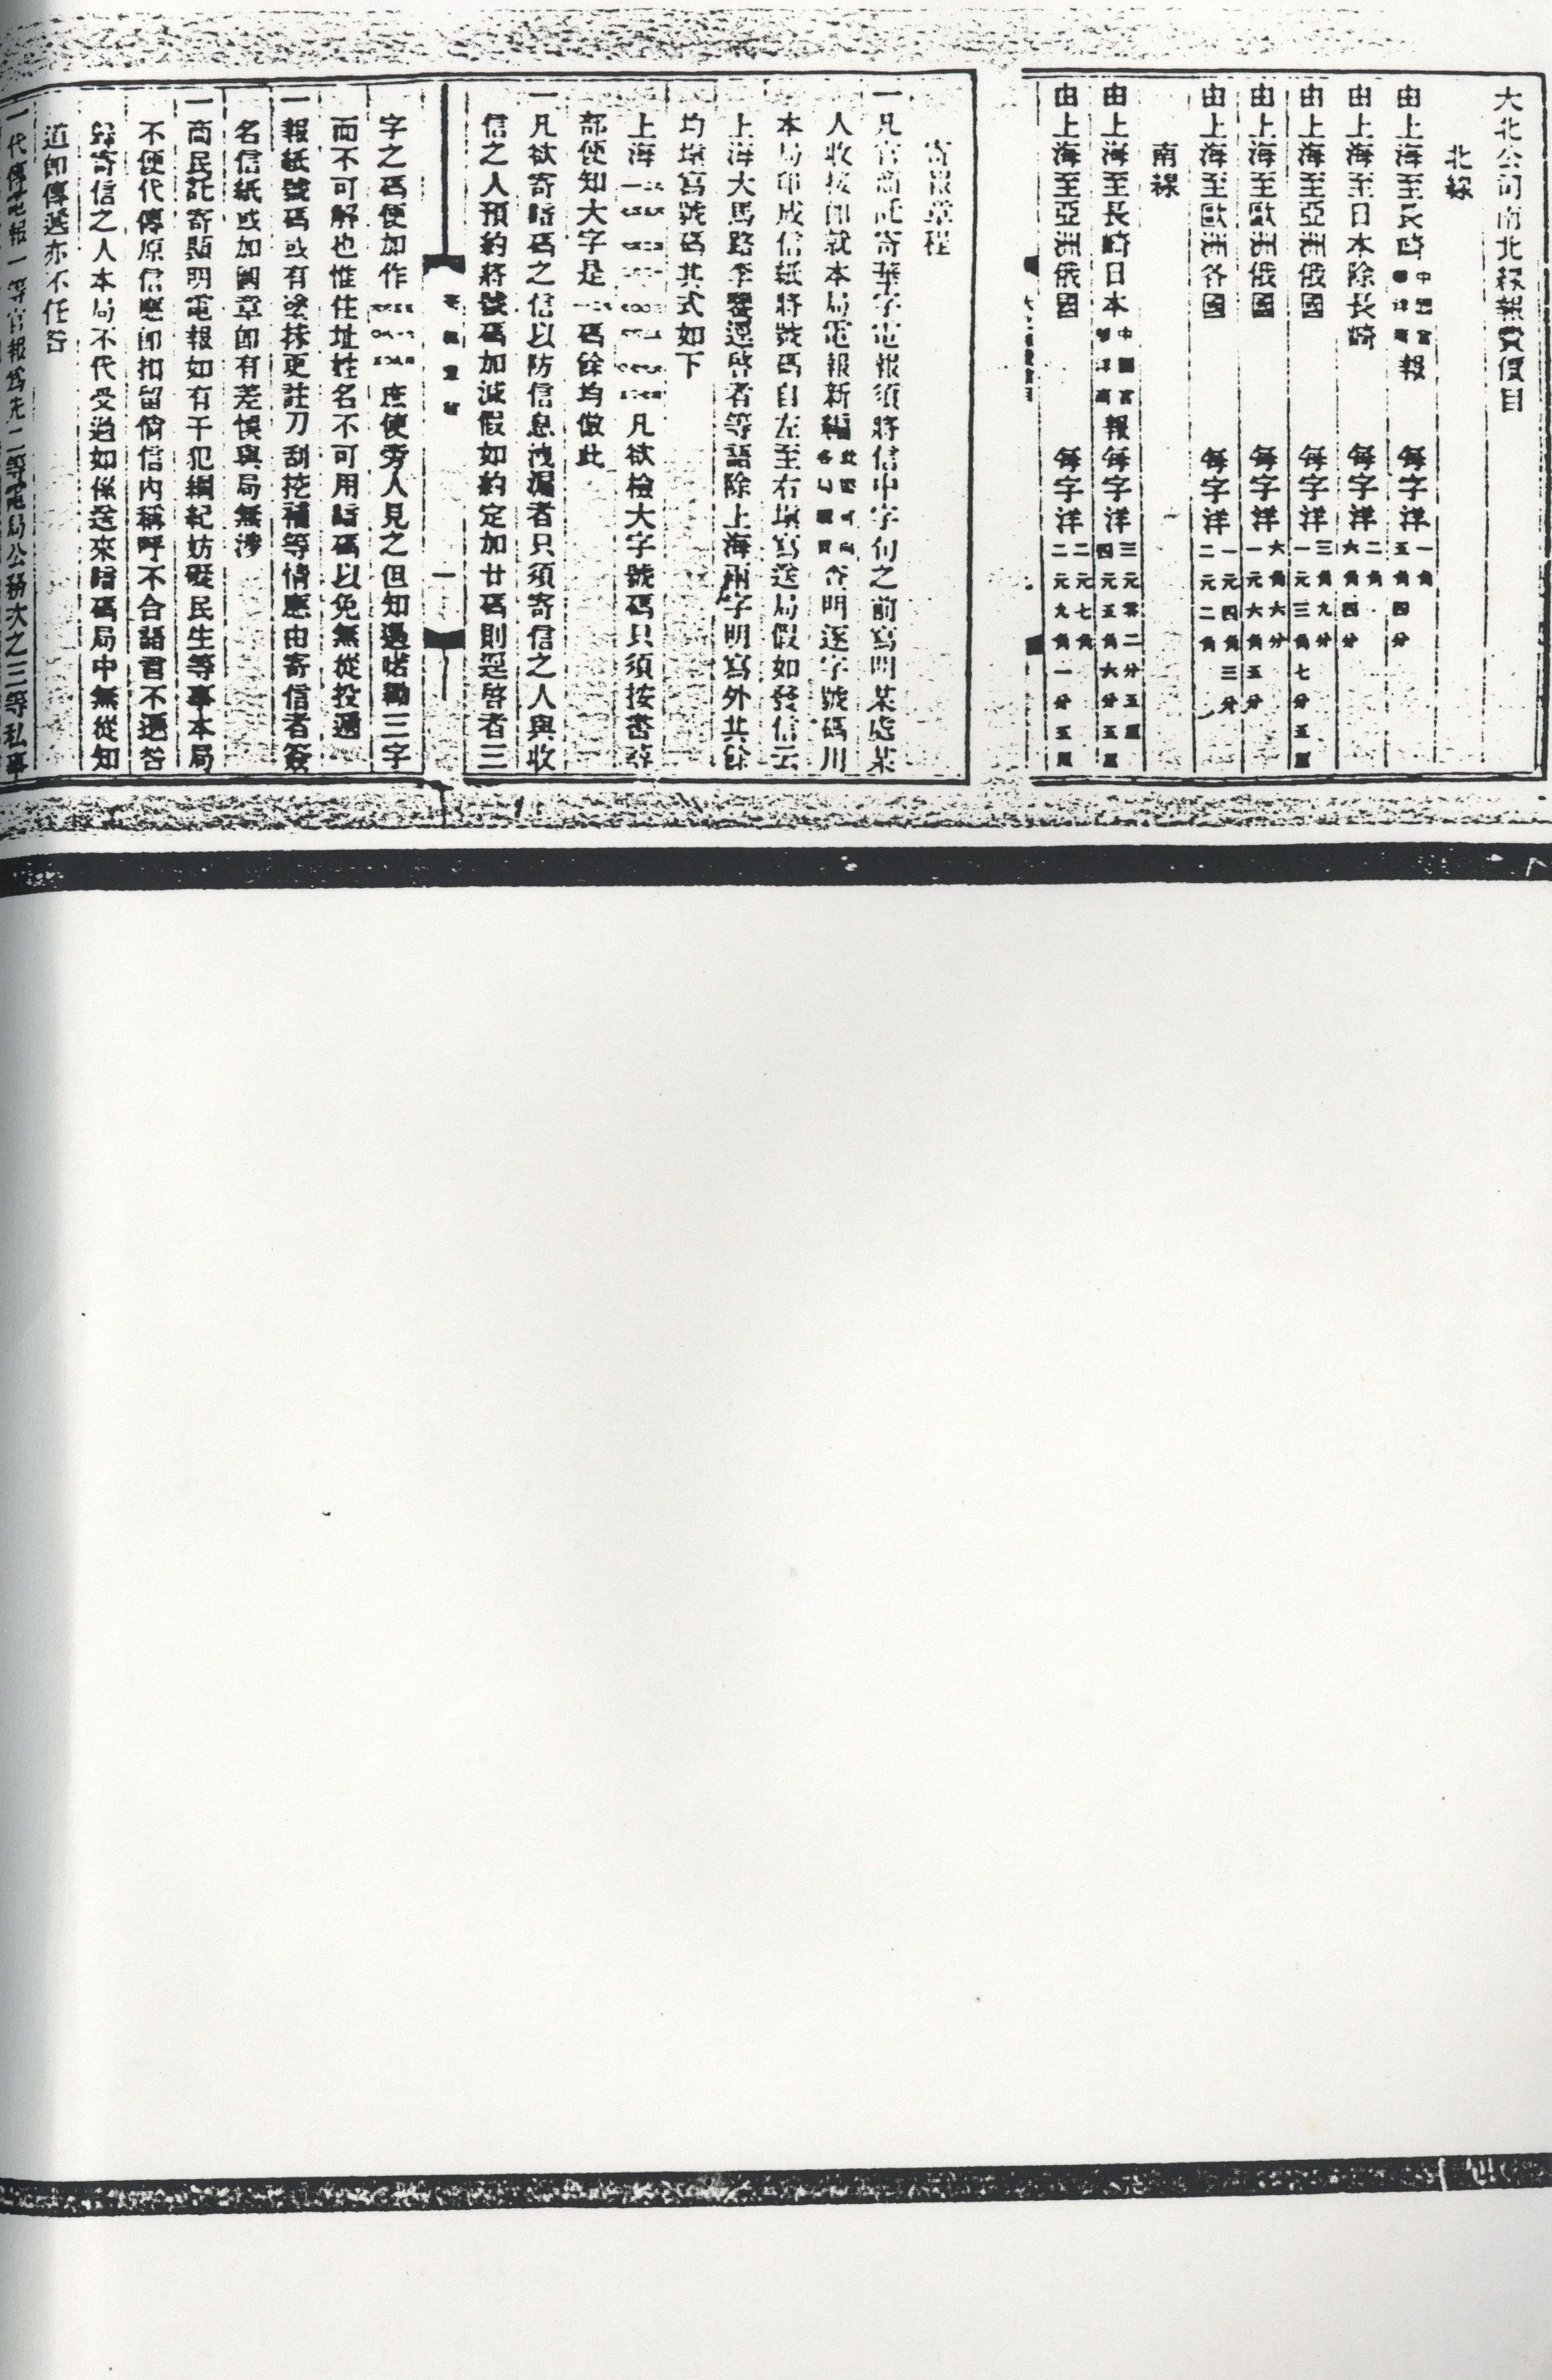 大北公司南北線報費價目
北線
由上海至長崎中國官報每字洋一角
五角四分
由上海至日本除長崎 每字洋二角
六角四分
由上海至亞洲俄國 每字洋三角九分
一元三角七分五厘
由上海至歐洲俄國 每字洋六角六分
一元六角五分
由上海至歐洲各國 每字洋一元四角三分
二元二角
南線
由上海至長崎日本中國官報每字洋三元零二分五厘
四元五角六分五厘
由上海至亞洲俄國 每字洋二元七角
二元九角一分五厘
寄報章程
一凡官商託寄華字電報須將信中字句之前寫明某處某
人收接即就本局電報新編查明逐字號碼用
本局印成信紙將號碼自左至右填寫送局假如發信云
上海大馬路李 逕啓者等語除上海兩字明寫外其餘
均填寫號碼其式如下
上海 凡欲檢大字號碼只須按書尋
部便知大字是 碼餘均倣此
一凡欲寄暗碼之信以防信息洩漏者只須寄信之人與收
信之人預約將號碼加減假如約定加廿碼則逕啓者三
字之碼便加作 庶使旁人見之但知 三字
而不可解也惟住址姓名不可用暗碼以免無從投遞
一報紙號碼或有塗抹更註刀刮挖補等情應由寄信者簽
名信紙或加圖章即有差悞與局無涉
一商民託寄顯明電報如有干犯綱紀妨礙民生等事本局
不便代傳原信應即扣留倘信內稱呼不合語言不遜咎
歸寄信之人本局不代受過如係送來暗碼局中無從知
道即傳遞亦不任咎
一代傳電報一等官報為先二等電局公務次之三等私事